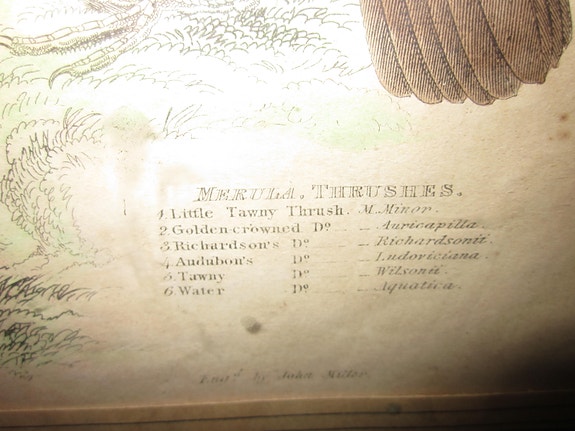 MERULA. THRUSHES.
1. Little Tawny Thrush. M. Minor.
2. Golden-crowned Dº — Auricapilla.
3. Richardson's Dº — Richardsonii.
4. Audubon's Dº — Ludoviciana.
5. Tawny Dº — Wilsonii.
6. Water Dº — Aquatica.
Engd. by John Miller.